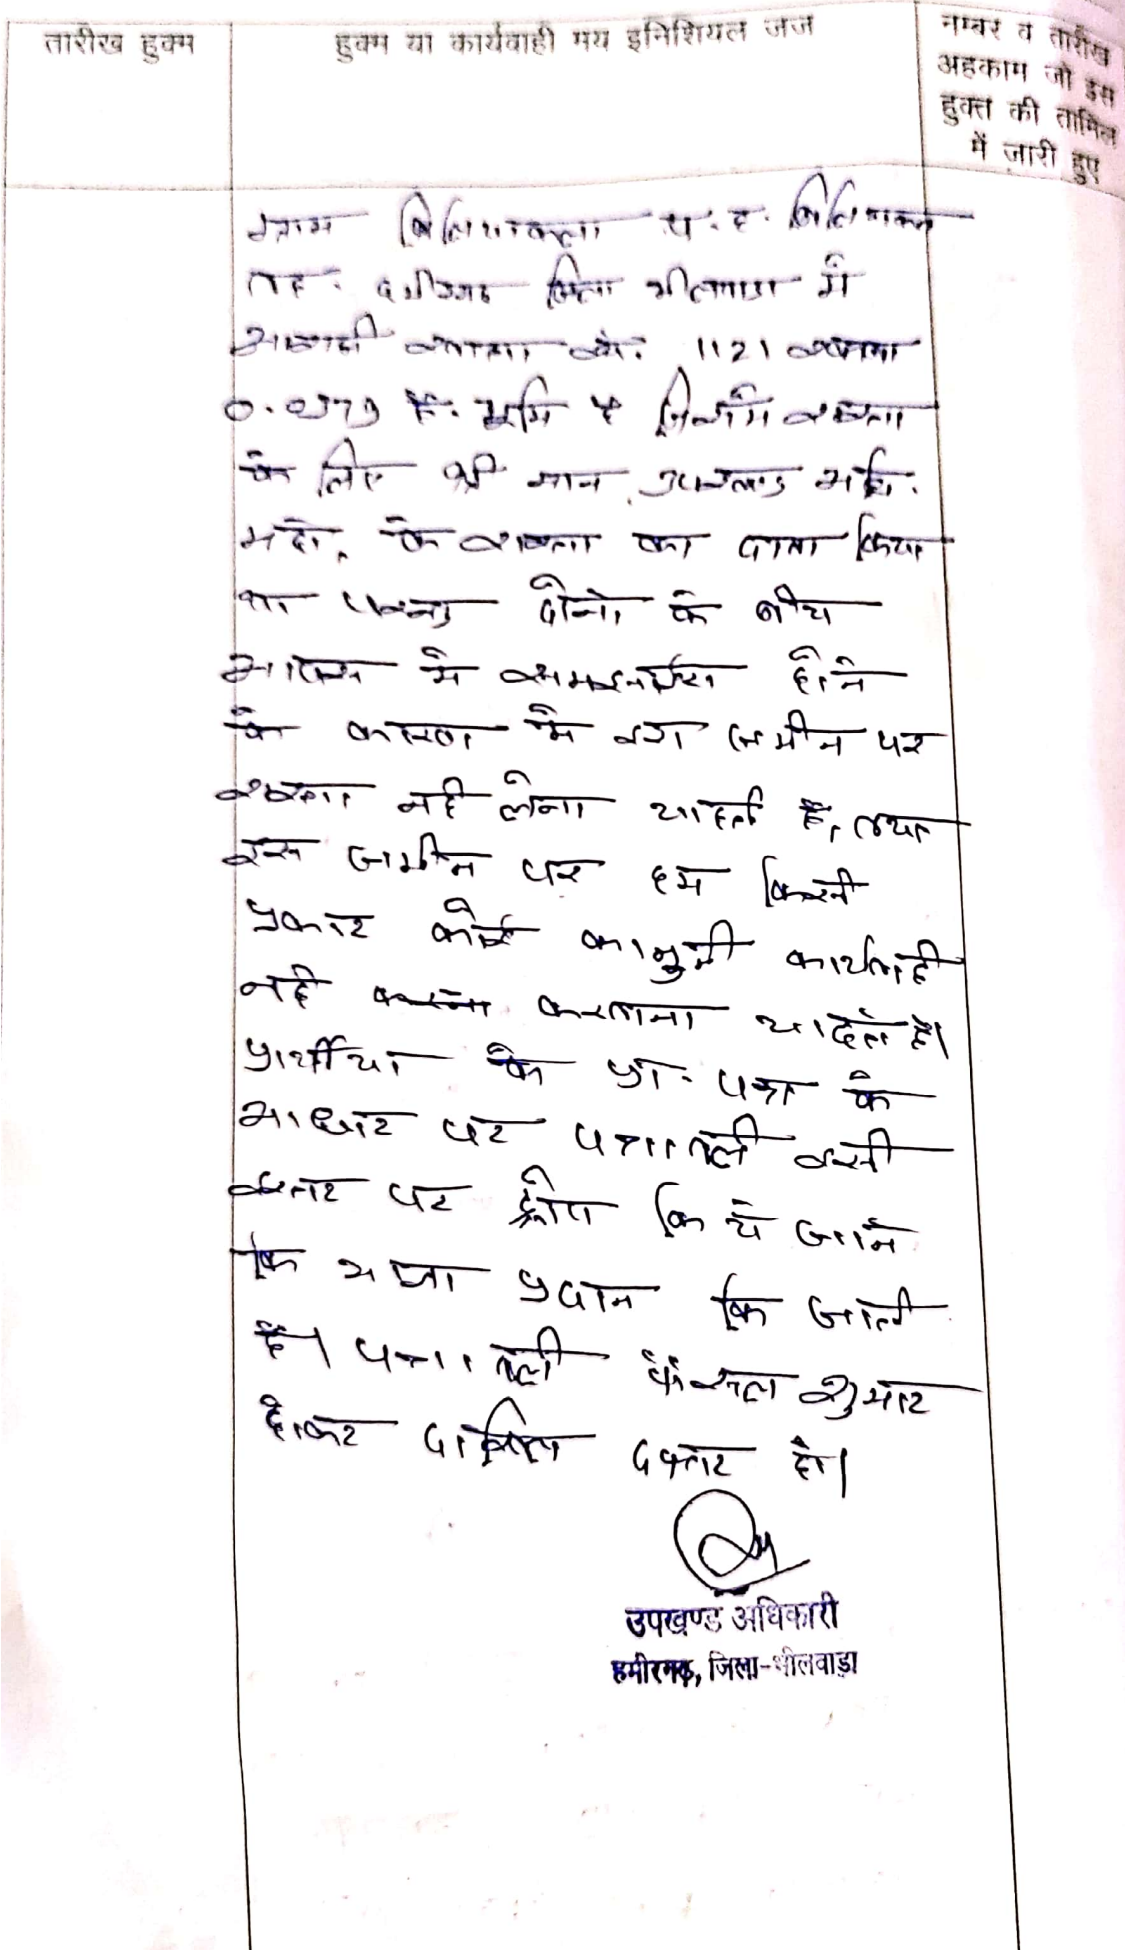 तारीख हुक्म
हुक्म या कार्यवाही मय इनिशियल जज
नम्बर व तारीख
अहकाम जो इस
हुक्त की तामिल
में जारी हुए
ग्राम बिलियाकला प.ह. बिलियाकला
तह. हमीरगढ जिला भीलवाडा में
आराजी खसरा सं. 1121 रकबा
0.0379 है. भूमि है रास्ता
के लिए श्री मान उपखण्ड अधि.
महो. के रास्ता का दावा किया
था परन्तु दोनो के बीच
आपस मे होने
के कारण मे उस जमीन पर
रास्ता नही लेना चाहती है, तथा
इस जमीन पर हम किसी
प्रकार कोई कानुनी कार्यवाही
नही करवाना चाहते है।
प्रार्थीया के प्रा. पत्र के
आधार पर पत्रावली इसी
स्तर पर ड्रोप किये जाने
कि आज्ञा प्रदान कि जाती
है। पत्रावली फेसल शुमार
होकर दाखिल दफ्तर हो।
उपखण्ड अधिकारी
हमीरगढ़, जिला-भीलवाड़ा